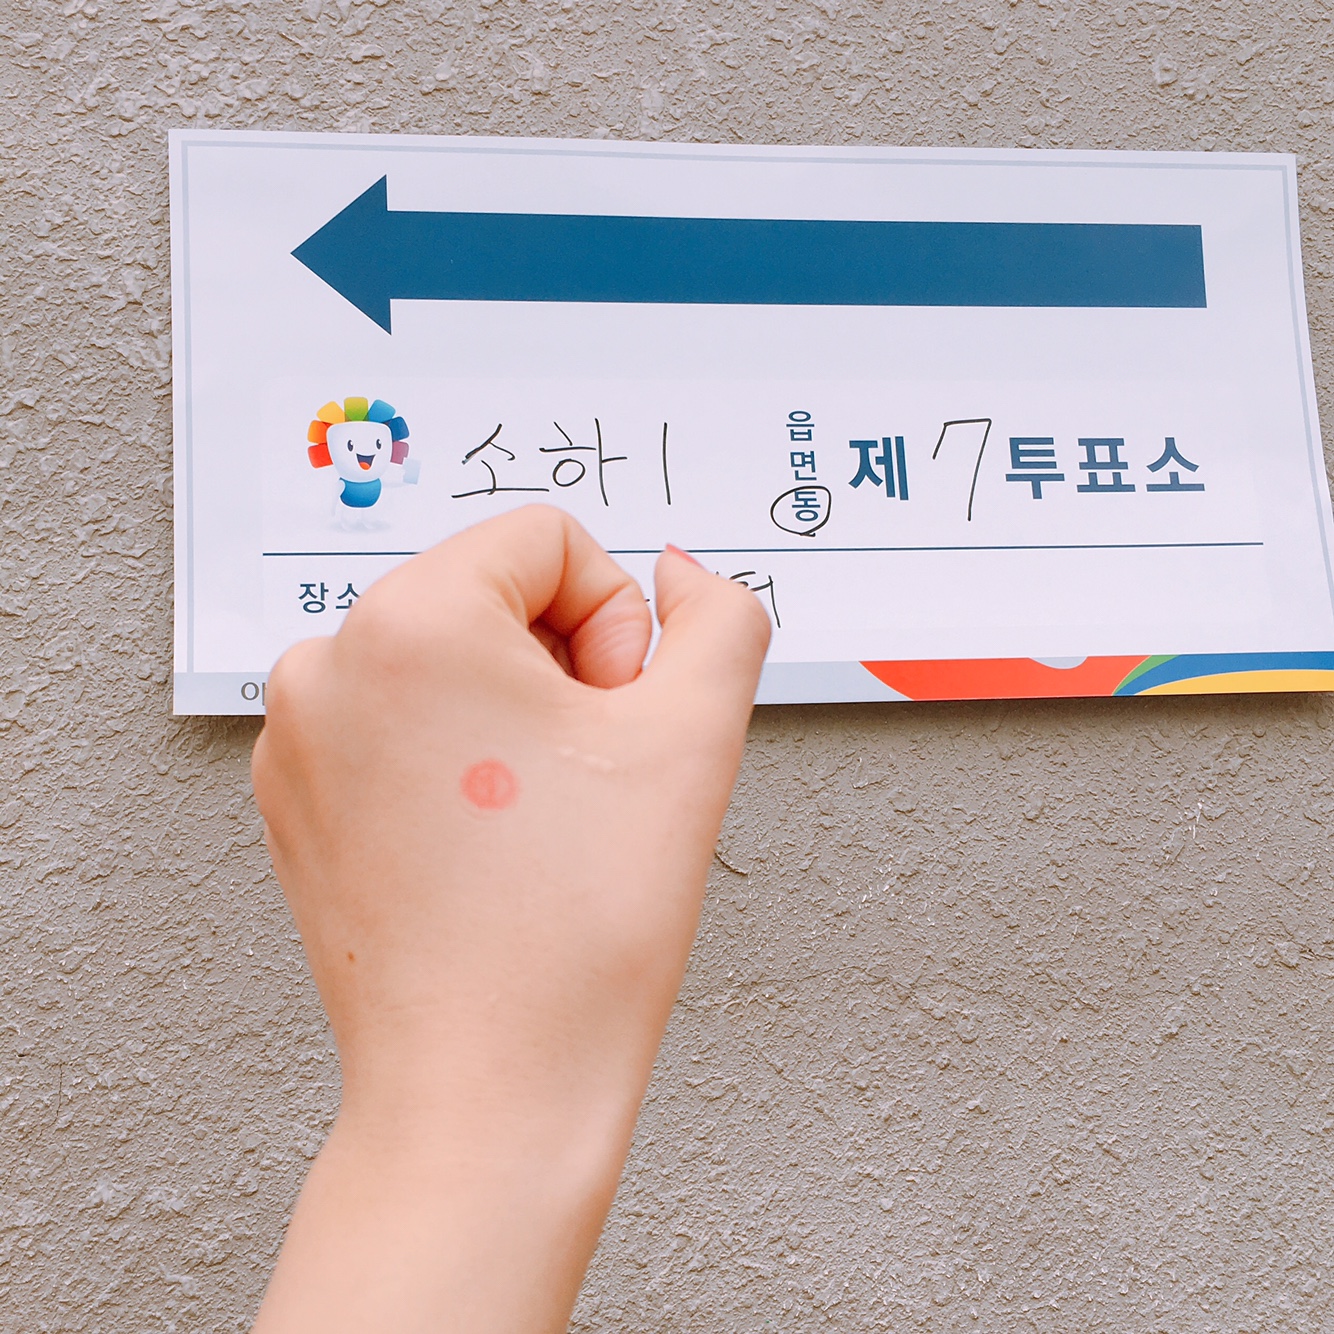 소하1 읍면동 제7투표소
장소